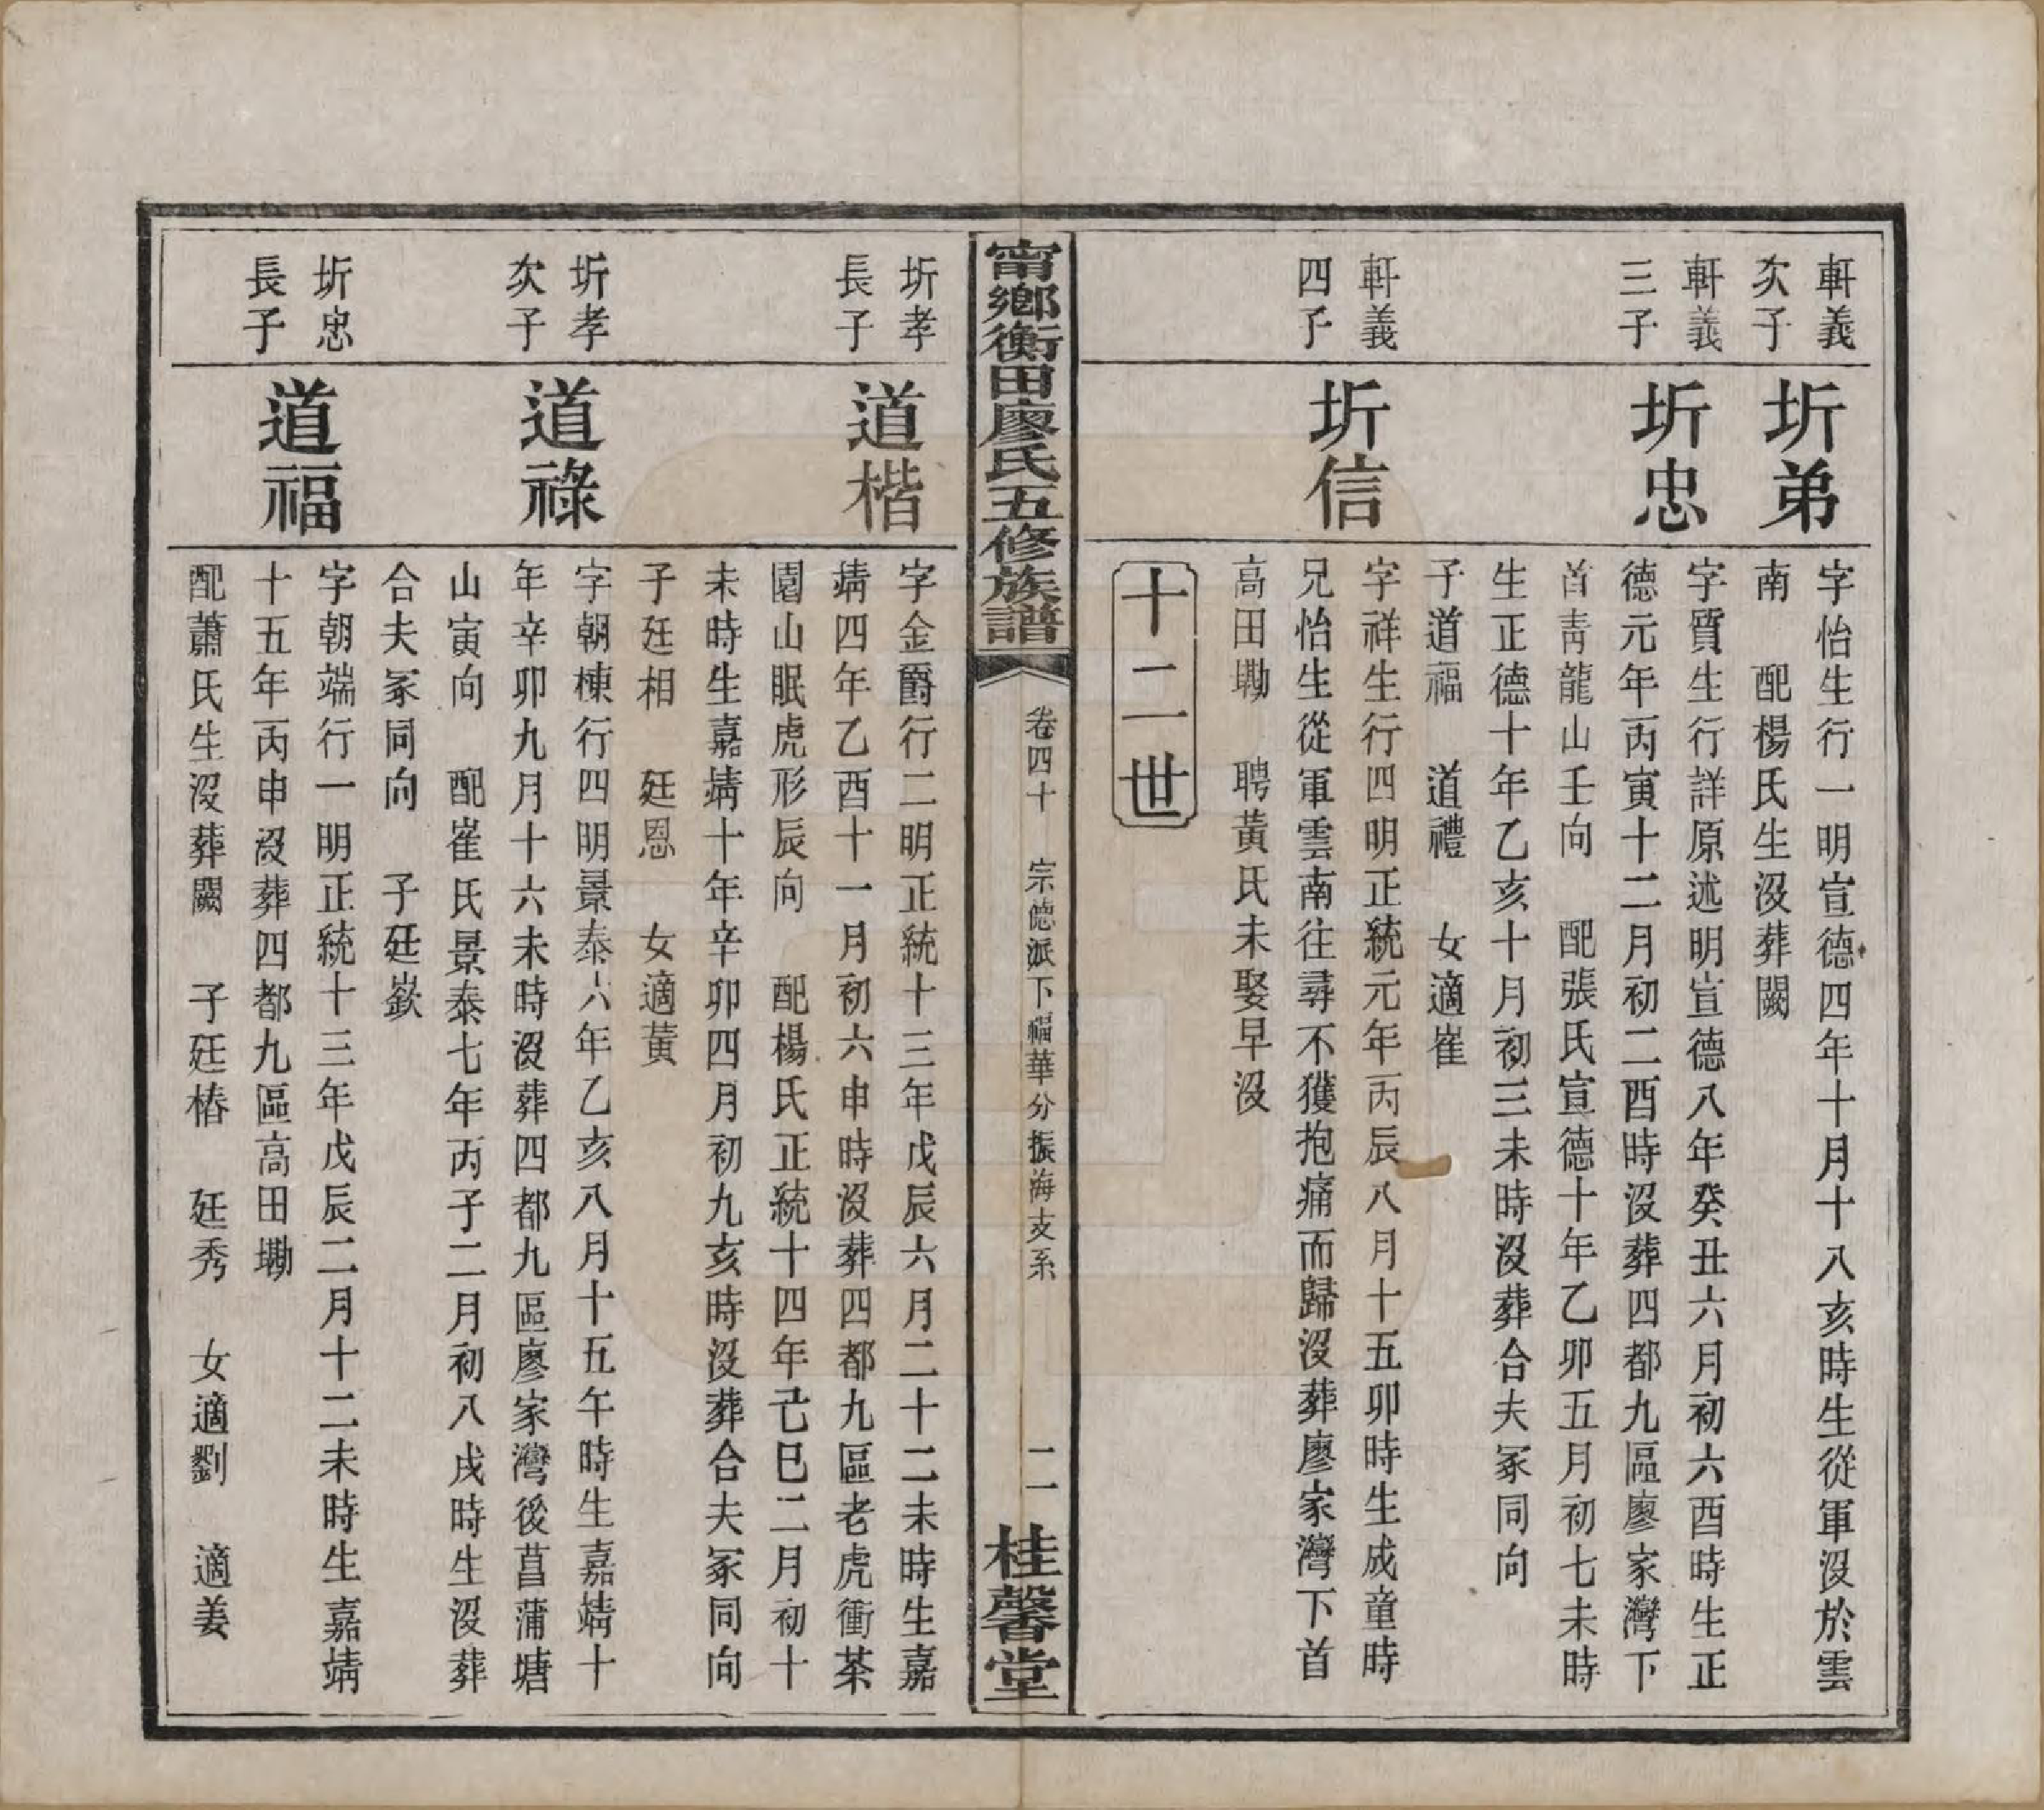 軒義
次子
圻弟
字怡生行一明宣德四年十月十八亥時生從軍沒於雲
南　配楊氏生沒葬闕
軒義
三子
圻忠
字質生行詳原述明宣德八年癸丑六月初六酉時生正
德元年丙寅十二月初二酉時沒葬四都九區廖家灣下
首靑龍山壬向　配張氏宣德十年乙卯五月初七未時
生正德十年乙亥十月初三未時沒葬合夫冢同向
子道福　道禮　女適崔
軒義
四子
圻信
字祥生行四明正統元年丙辰八月十五卯時生成童時
兄怡生從軍雲南往尋不獲抱痛而歸沒葬廖家灣下首
高田墈　聘黃氏未娶早沒
十二世
甯鄉衡田廖氏五修族譜
卷四十　宗德派下福華分振海支系
二
桂馨堂
圻孝
長子
道楷
字金爵行二明正統十三年戊辰六月二十二未時生嘉
靖四年乙酉十一月初六申時沒葬四都九區老虎衝茶
園山眠虎形辰向　配楊氏正統十四年己巳二月初十
未時生嘉靖十年辛卯四月初九亥時沒葬合夫冢同向
子廷相　廷恩　女適黃
圻孝
次子
道祿
字朝棟行四明景泰六年乙亥八月十五午時生嘉靖十
年辛卯九月十六未時沒葬四都九區廖家灣後菖蒲塘
山寅向　配崔氏景泰七年丙子二月初八戌時生沒葬
合夫冢同向　子廷嶔
圻忠
長子
道福
字朝端行一明正統十三年戊辰二月十二未時生嘉靖
十五年丙申沒葬四都九區高田墈
配蕭氏生沒葬闕　子廷椿　廷秀　女適劉　適姜